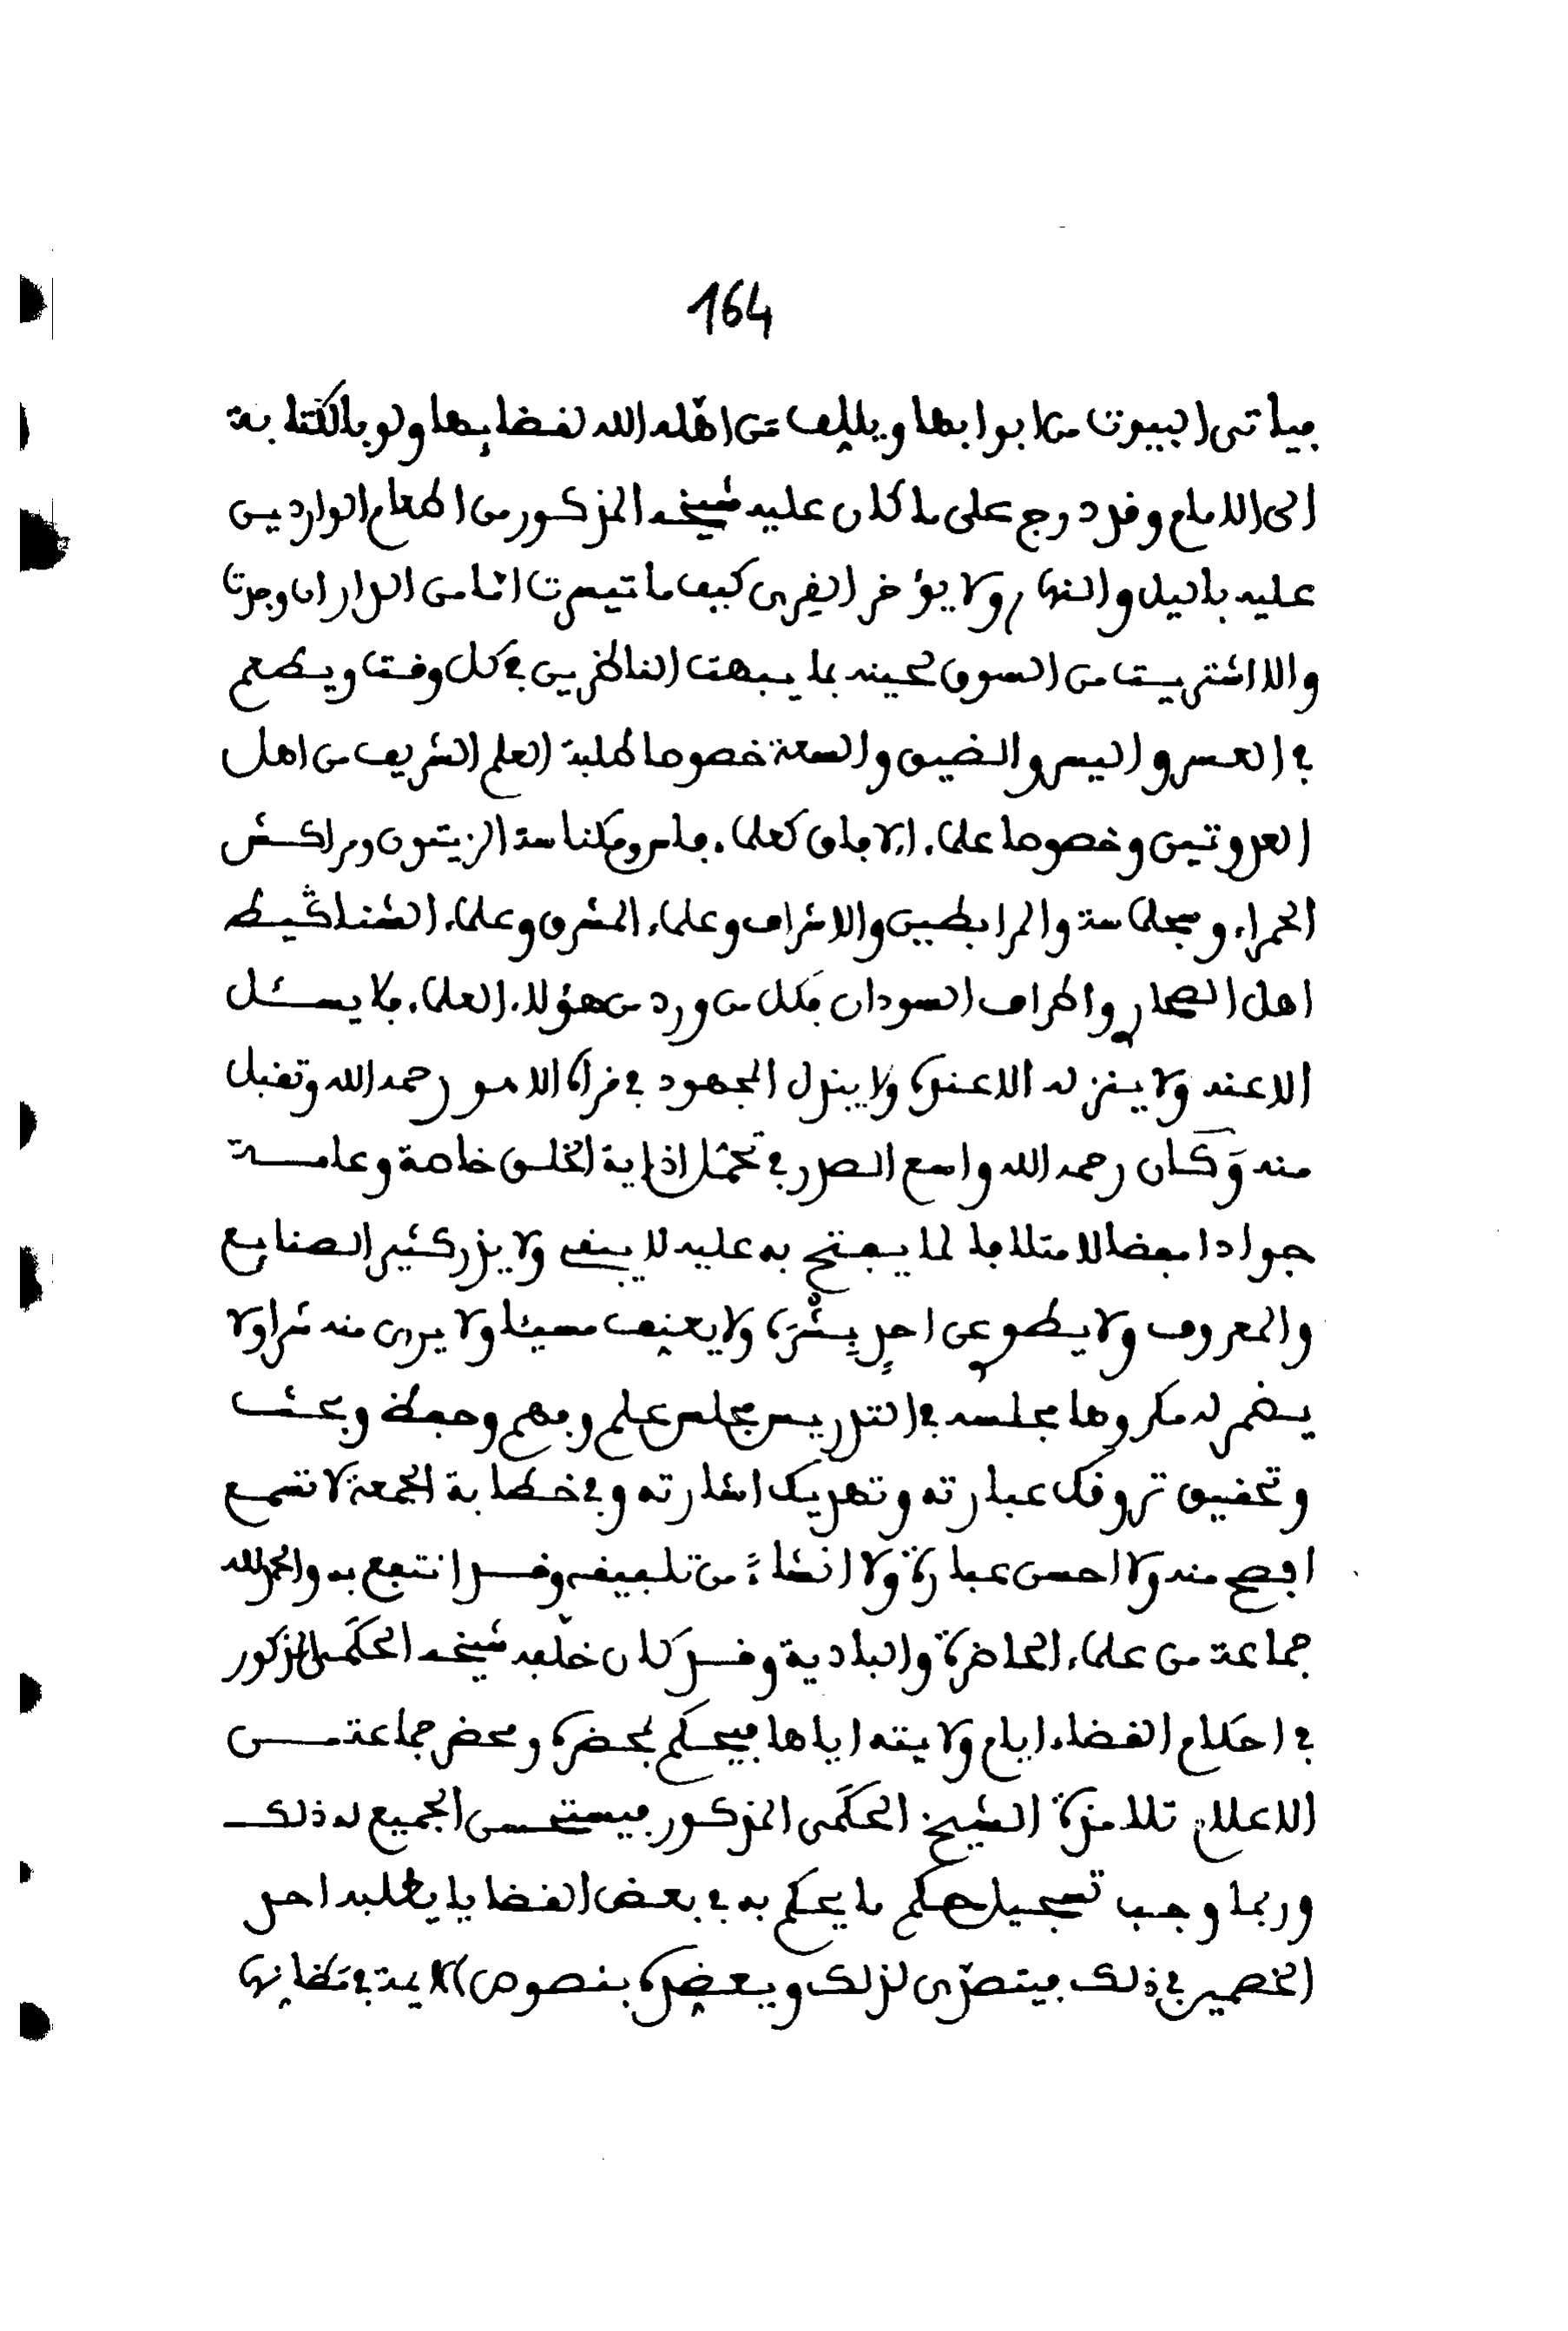 164
فياتى البيوت من ابوابها ويليف من اهّله الله لقضايها ولو بالكتابة
الى الامام وقد درج على ما كان عليه شيخه المذكور من اطعام الواردين
عليه باليل والنهار ولا يؤخر القِرى كيف ما تيسرت اما من الدار ان وجدت
والا اشتريت من السوق لحينه بما يبهت الناظرين في كل وقت ويطعم
في العسر واليسر والضيق والسعة خصوصا طلبة العلم الشريف من اهل
العدوتين وخصوصا علماء الافاق كعلماء فاس ومكناسة الزيتون ومراكش
الحمراء وسجلماسة والمرابطين والاشراف وعلماء المشرق وعلماء الشناڭيط
اهل الصحارٍ واطراف السودان فكل من ورد من هؤلاء العلماء فلا يسئل
الا عنه ولا ينزله الا عنده ولا يبذل المجهود في قراه الا هو رحمه الله وتقبل
منه وَكان رحمه الله واسع الصدر في تحمّل اذاية الخلق خاصة وعامة
جوادا مفضالا متلافا لما يفتح به عليه لا يبقى ولا يذر كثير الصنايع
والمعروف ولا يطوى عن احدٍ بِشْرَه ولا يعنِف مسيئا ولا يرى منه شرا ولا
يضمر له مكروها مجلسه في التدريس مجلس علم وفهم وحفظ وبحث
وتحقيق تروقك عبارته وتهزيك اشارته وفي خطابة الجمعة لا تسمع
افصح منه ولا احسن عبارة ولا انشاءً من تلفيفه وقد انتفع به والحمد لله
جماعة من علماء الحاضرة والبادية وقد كان خلّفه شيخه الحكَمى المذكور
في احكام القضاء ايام ولايته اياها فيحكم بمحضره ومحضر جماعة من
الاعلام تلامذة الشيخ الحكَمى المذكور فيستحسن الجميع له ذلك
وربما وجب تسجيل حكم ما يحكم به في بعض القضايا يطلبه احد
الخصمين في ذلك فيتصدّى لذلك ويعضِده بنصوص الايمة في مَظانِها